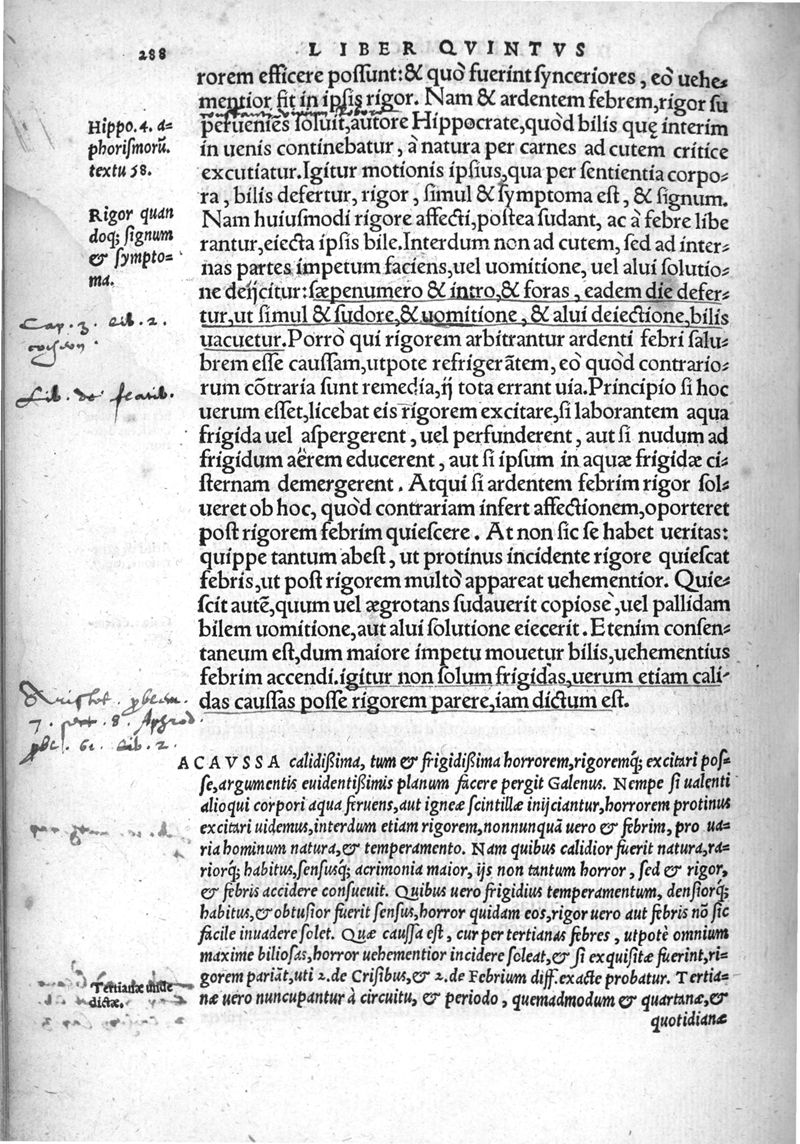 288
LIBER QVINTVS
rorem efficere possunt:& quò fuerint synceriores, eò uehe-
mentior fit in ipsis rigor. Nam & ardentem febrem,rigor su
peruenies soluit,autore Hippocrate,quòd bilis quę interim
in uenis continebatur, à natura per carnes ad cutem critice
excutiatur.Igitur motionis ipsius,qua per sentientia corpo-
ra, bilis defertur, rigor, simul & symptoma est, & signum.
Nam huiusmodi rigore affecti,postea sudant, ac à febre libe
rantur,eiecta ipsis bile.Interdum non ad cutem, sed ad inter-
nas partes impetum faciens,uel uomitione, uel alui solutio-
ne deijcitur:sæpenumero & intro,& foras, eadem die defer-
tur,ut simul & sudore,& uomitione, & alui deiectione,bilis
uacuetur.Porrò qui rigorem arbitrantur ardenti febri salu-
brem esse caussam,utpote refrigerãtem, eò quòd contrario-
rum cõtraria sunt remedia,ij tota errant uia.Principio si hoc
uerum esset,licebat eis rigorem excitare,si laborantem aqua
frigida uel aspergerent, uel perfunderent, aut si nudum ad
frigidum aërem educerent, aut si ipsum in aquæ frigidæ ci-
sternam demergerent. Atqui si ardentem febrim rigor sol-
ueret ob hoc, quòd contrariam infert affectionem,oporteret
post rigorem febrim quiescere. At non sic se habet ueritas:
quippe tantum abest, ut protinus incidente rigore quiescat
febris,ut post rigorem multò appareat uehementior. Quie-
scit autẽ,quum uel ægrotans sudauerit copiosè,uel pallidam
bilem uomitione,aut alui solutione eiecerit.Etenim consen-
taneum est,dum maiore impetu mouetur bilis,uehementius
febrim accendi.igitur non solum frigidas,uerum etiam cali-
das caussas posse rigorem parere,iam dictum est.
Hippo. 4. a-
phorismorũ.
textu 58.
Rigor quan
doq; signum
& sympto-
ma.
Cap. 3. lib. 2.
Lib. de flatib.
Aristot. problem.
7. sect. 8. Aphrod.
probl. 61. lib. 2.
A CAVSSA calidißima, tum & frigidißima horrorem,rigoremq; excitari pos-
se,argumentis euidentißimis planum facere pergit Galenus. Nempe si ualenti
alioqui corpori aqua feruens,aut igneæ scintillæ inijciantur,horrorem protinus
excitari uidemus,interdum etiam rigorem,nonnunquã uero & febrim, pro ua-
ria hominum natura,& temperamento. Nam quibus calidior fuerit natura,ra-
riorq; habitus,sensusq; acrimonia maior, ijs non tantum horror, sed & rigor,
& febris accidere consueuit. Quibus uero frigidius temperamentum, densiorq;
habitus,& obtusior fuerit sensus,horror quidam eos,rigor uero aut febris nõ sic
facile inuadere solet. Quæ caussa est, cur per tertianas febres, utpotè omnium
maxime biliosas,horror uehementior incidere soleat,& si exquisitæ fuerint,ri-
gorem pariãt,uti 2.de Crisibus,& 2.de Febrium diff.exacte probatur. Tertia-
næ uero nuncupantur à circuitu, & periodo, quemadmodum & quartanæ,&
quotidianæ
Tertianæ unde
dictæ.